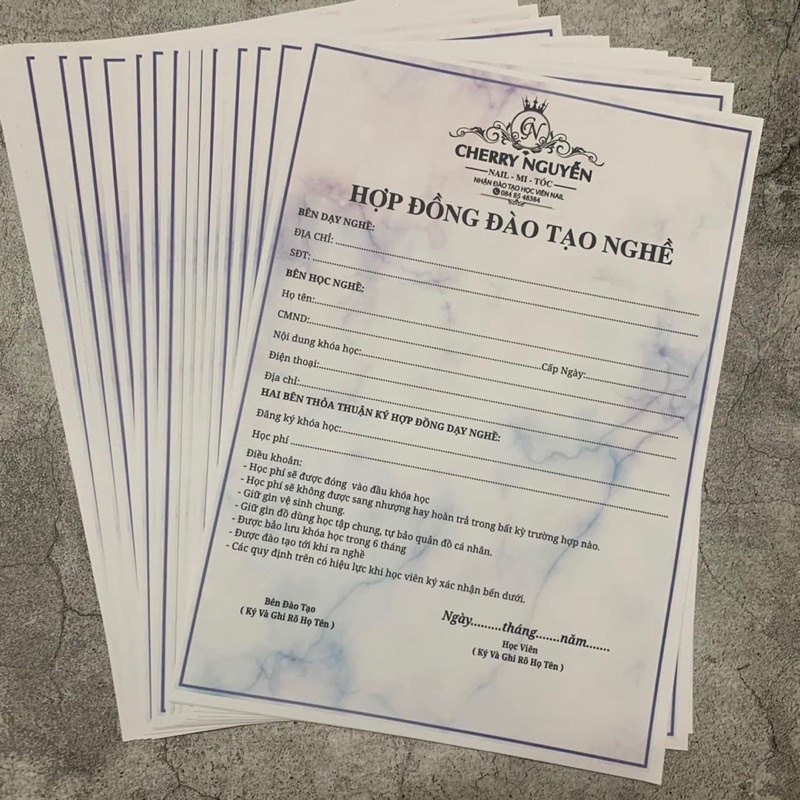 CN
CHERRY NGUYỄN
NAIL - MI - TÓC
NHẬN ĐÀO TẠO HỌC VIÊN NAIL
084 85 48384
HỢP ĐỒNG ĐÀO TẠO NGHỀ
BÊN DẠY NGHỀ:
ĐỊA CHỈ:
SĐT:
BÊN HỌC NGHỀ:
Họ tên:
CMND: Cấp Ngày:
Nội dung khóa học:
Điện thoại:
Địa chỉ:
HAI BÊN THỎA THUẬN KÝ HỢP ĐỒNG DẠY NGHỀ:
Đăng ký khóa học:
Học phí
Điều khoản:
- Học phí sẽ được đóng vào đầu khóa học
- Học phí sẽ không được sang nhượng hay hoàn trả trong bất kỳ trường hợp nào.
- Giữ gin vệ sinh chung.
- Giữ gin đồ dùng học tập chung, tự bảo quản đồ cá nhân.
- Được bảo lưu khóa học trong 6 tháng
- Được đào tạo tới khi ra nghề
- Các quy định trên có hiệu lực khi học viên ký xác nhận bến dưới.
Ngày.........tháng.......năm.......
Bên Đào Tạo
( Ký Và Ghi Rõ Họ Tên )
Học Viên
( Ký Và Ghi Rõ Họ Tên )